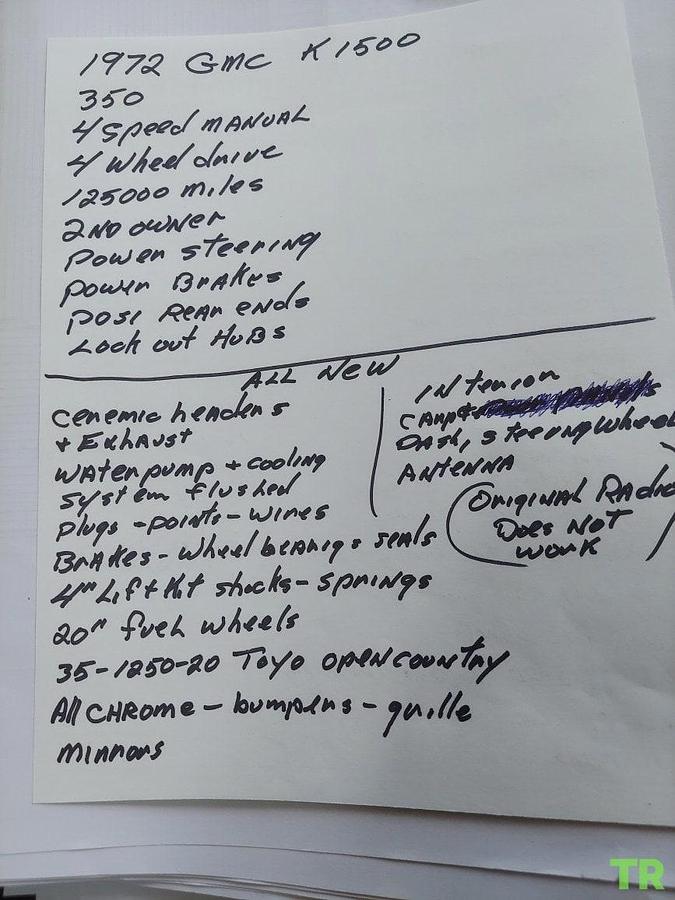 1972 GMC K1500
350
4 Speed MANUAL
4 Wheel drive
125000 miles
2ND OWNER
Power steering
power BRAKes
Posi Rear ends
Lock out HUBS
ALL NEW
ceremic headers
+ Exhaust
WATER pump + cooling
system flushed
plugs - points - wires
BRAKes - wheel bearigs seals
4" Lift Kit shocks - springs
20" fuel wheels
35-1250-20 TOYO open country
All CHROME - bumpers - grille
mirrors
INterior
CARpet
DASH, Steering Wheel
ANTENNA
(ORIGINAL RADIO
Does Not
work)
TR